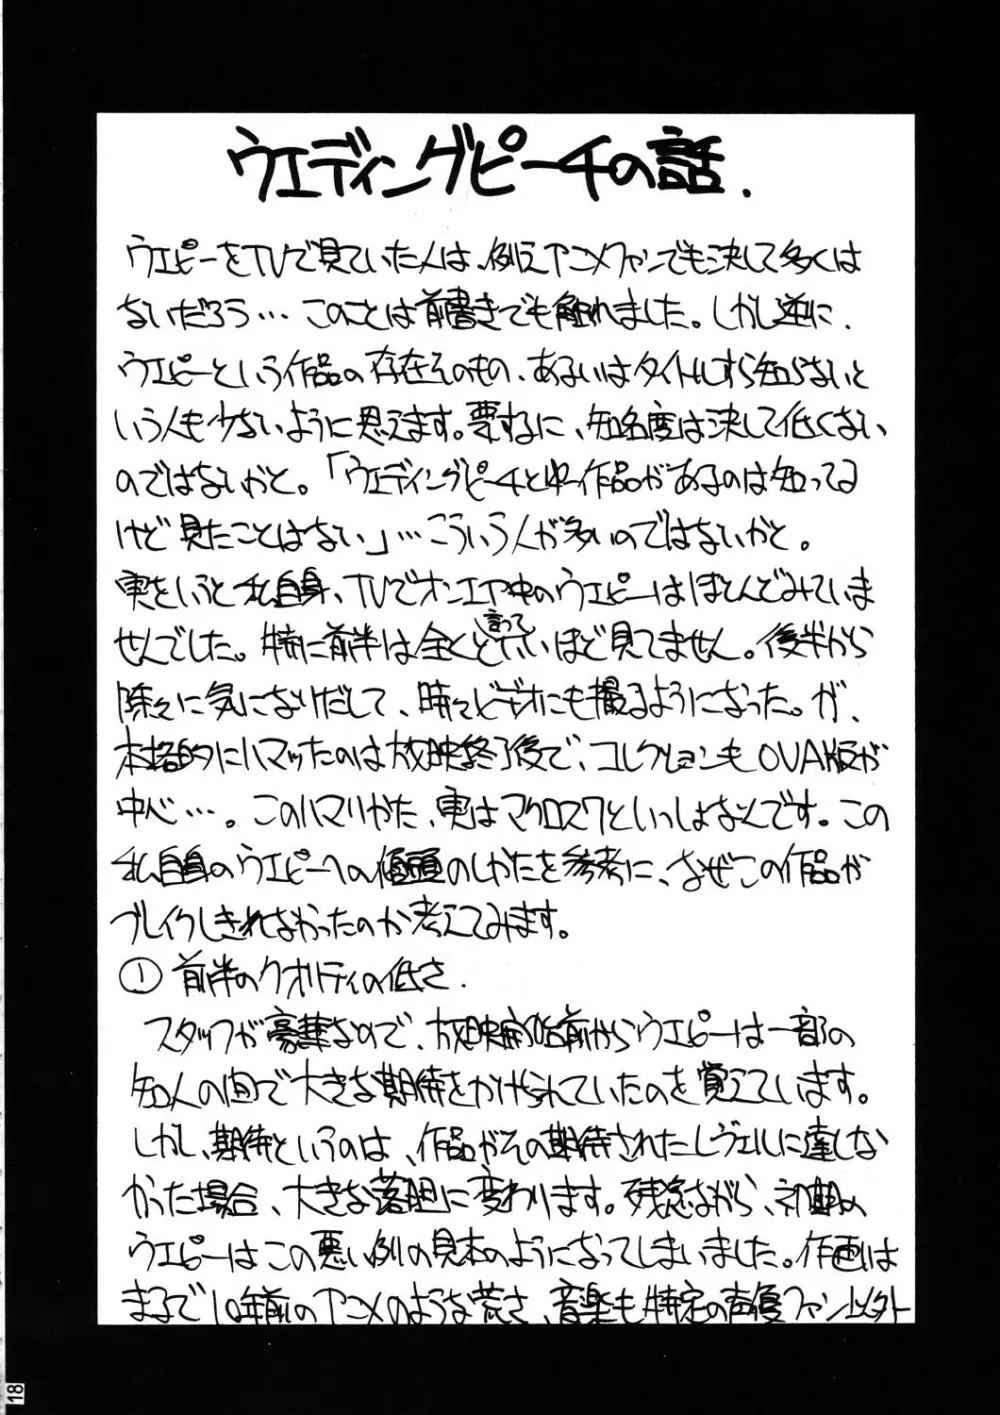 ウエディングピーチの話.
ウエピーをTVで見ていた人は、例えアニメファンでも決して多くは
ないだろう…このことは前書きでも触れました。しかし逆に、
ウエピーという作品の存在そのもの、あるいはタイトルすら知らないと
いう人も少ないように思えます。要するに、知名度は決して低くない
のではないかと。「ウエディングピーチとゆー作品があるのは知ってる
けど見たことはない」…こういう人が多いのではないかと。
実をいうと私自身、TVでオンエア中のウエピーはほとんどみていま
せんでした。特に前半は全くと言っていいほど見てません。後半から
除々に気になりだして、時々ビデオにも撮るようになった。が、
本格的にハマッたのは放映終了後で、コレクションもOVA版が
中心…。このハマりかた、実はマクロス7といっしょなんです。この
私自身のウエピーへの傾頭のしかたを参考に、なぜこの作品が
ブレイクしきれなかったのか考えてみます。
① 前半のクオリティの低さ.
スタッフが豪華なので、放映開始前からウエピーは一部の
知人の間で大きな期待をかけられていたのを覚えています。
しかし、期待というのは、作品がその期待されたレヴェルに達しな
かった場合、大きな落胆に変わります。残念ながら、初期の
ウエピーはこの悪い例の見本のようになってしまいました。作画は
まるで10年前のアニメのような荒さ、音楽も特定の声優ファン以外
18